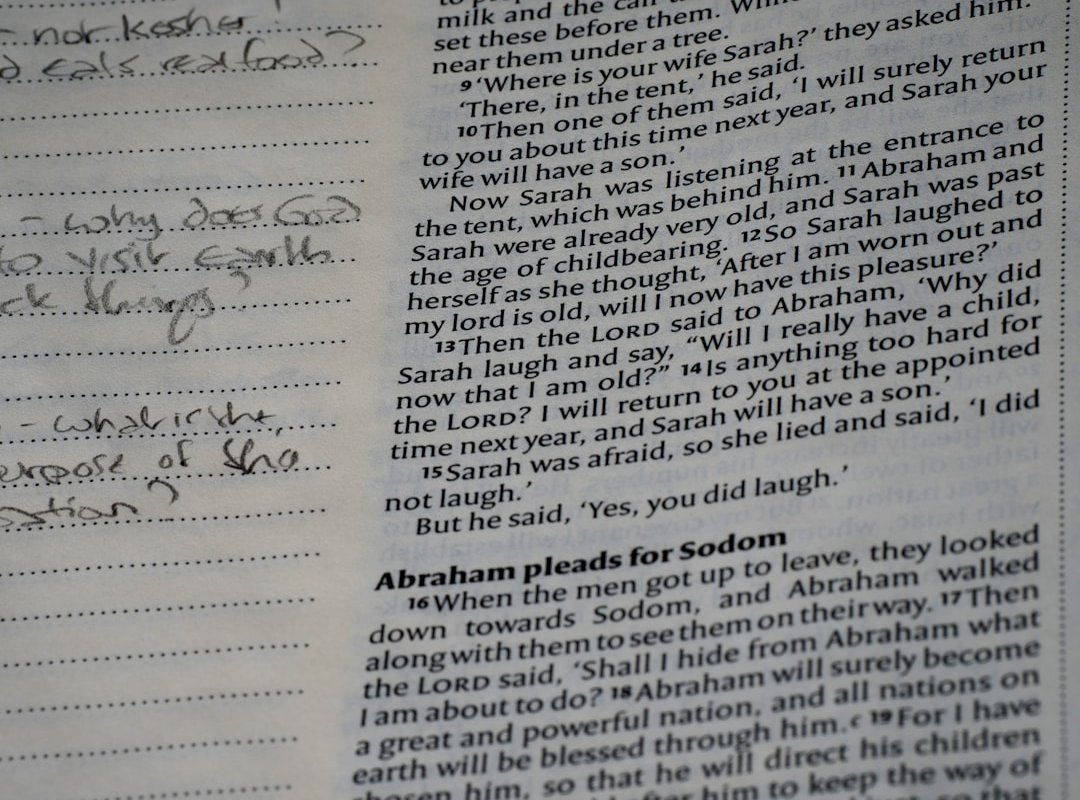 - not kosher
eats real food?
- why does God
to visit earth
ck things?
- what is the
erpose of the
milk and the
set these before them.
near them under a tree.
9 ‘Where is your wife Sarah?’ they asked him.
‘There, in the tent,’ he said.
10 Then one of them said, ‘I will surely return
to you about this time next year, and Sarah your
wife will have a son.’
Now Sarah was listening at the entrance to
the tent, which was behind him. 11 Abraham and
Sarah were already very old, and Sarah was past
the age of childbearing. 12 So Sarah laughed to
herself as she thought, ‘After I am worn out and
my lord is old, will I now have this pleasure?’
13 Then the LORD said to Abraham, ‘Why did
Sarah laugh and say, “Will I really have a child,
now that I am old?” 14 Is anything too hard for
the LORD? I will return to you at the appointed
time next year, and Sarah will have a son.’
15 Sarah was afraid, so she lied and said, ‘I did
not laugh.’
But he said, ‘Yes, you did laugh.’
Abraham pleads for Sodom
16 When the men got up to leave, they looked
down towards Sodom, and Abraham walked
along with them to see them on their way. 17 Then
the LORD said, ‘Shall I hide from Abraham what
I am about to do? 18 Abraham will surely become
a great and powerful nation, and all nations on
earth will be blessed through him.c 19 For I have
chosen him, so that he will direct his children
him to keep the way of
that